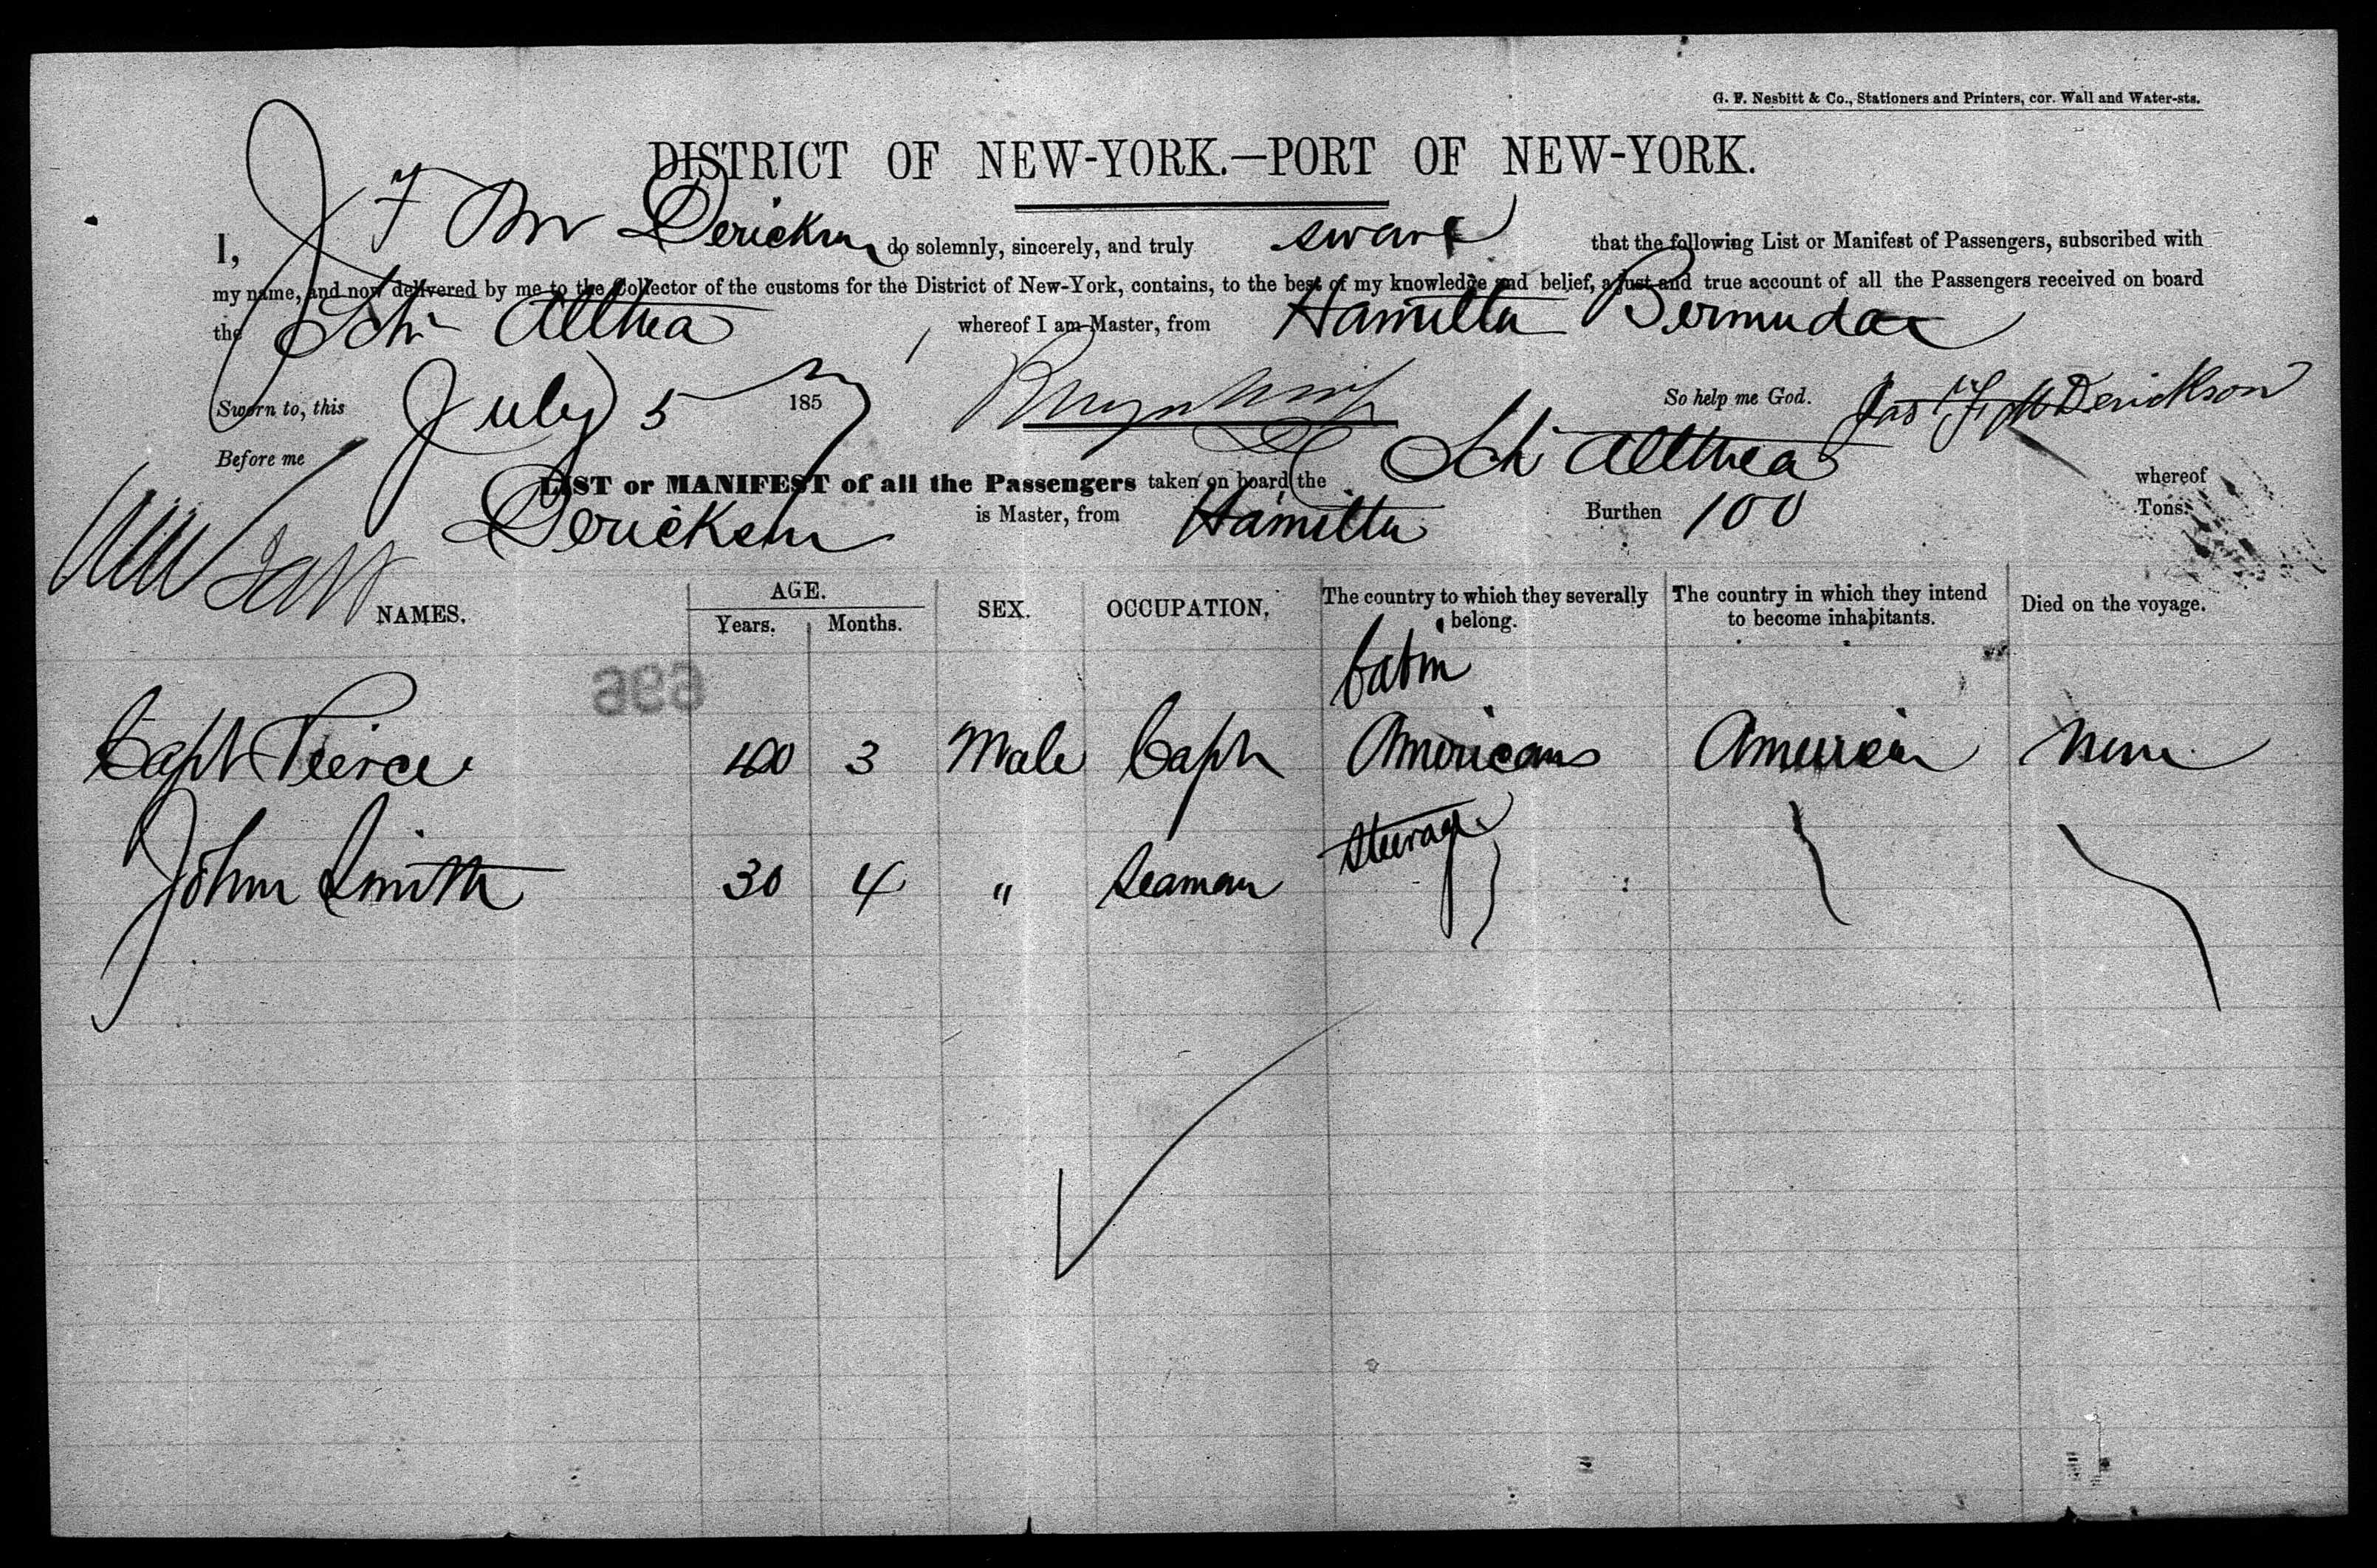 G. F. Nesbitt & Co., Stationers and Printers, cor. Wall and Water-sts.
DISTRICT OF NEW-YORK.—PORT OF NEW-YORK.
I, J F M Derickson do solemnly, sincerely, and truly swear that the following List or Manifest of Passengers, subscribed with
my name, and now delivered by me to the Collector of the customs for the District of New-York, contains, to the best of my knowledge and belief, a just and true account of all the Passengers received on board
the Schr Althea whereof I am Master, from Hamilton Bermuda
Sworn to, this July 5 1857 So help me God. Jas F M Derickson
Before me
LIST or MANIFEST of all the Passengers taken on board the Schr Althea whereof
Derickson is Master, from Hamilton Burthen 100 Tons.
NAMES. AGE. Years. Months. SEX. OCCUPATION. The country to which they severally belong. The country in which they intend to become inhabitants. Died on the voyage.
Cabin
Capt Pierce 40 3 Male Capt Americans American None
Steerage
John Smith 30 4 " Seaman